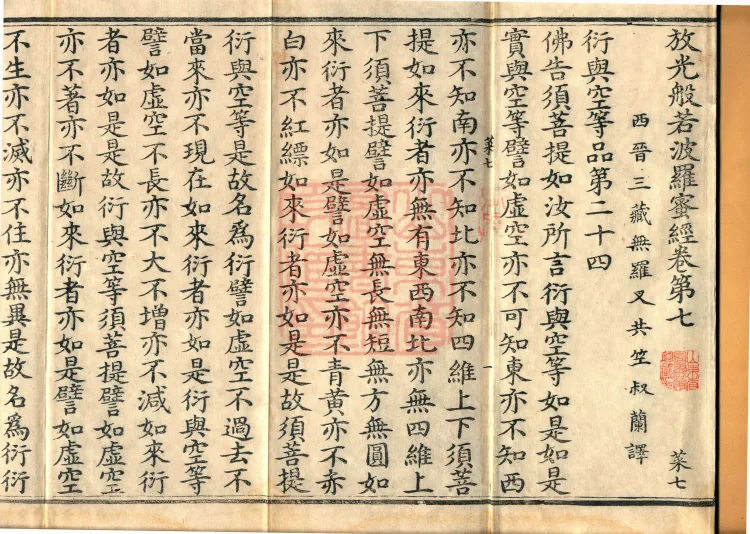 放光般若波羅蜜經卷第七
菜七
西晉三藏無羅叉共竺叔蘭譯
衍與空等品第二十四
佛告須菩提如汝所言衍與空等如是如是
實與空等譬如虛空亦不可知東亦不知西
亦不知南亦不知北亦不知四維上下須菩
菜七
一
提如來衍者亦無有東西南北亦無四維上
下須菩提譬如虛空無長無短無方無圓如
來衍者亦如是譬如虛空亦不青黃亦不赤
白亦不紅縹如來衍者亦如是是故須菩提
衍與空等是故名為衍譬如虛空不過去不
當來亦不現在如來衍者亦如是衍與空等
譬如虛空不長亦不大不增亦不減如來衍
者亦如是是故衍與空等須菩提譬如虛空
亦不著亦不斷如來衍者亦如是譬如虛空
不生亦不滅亦不住亦無異是故名為衍衍